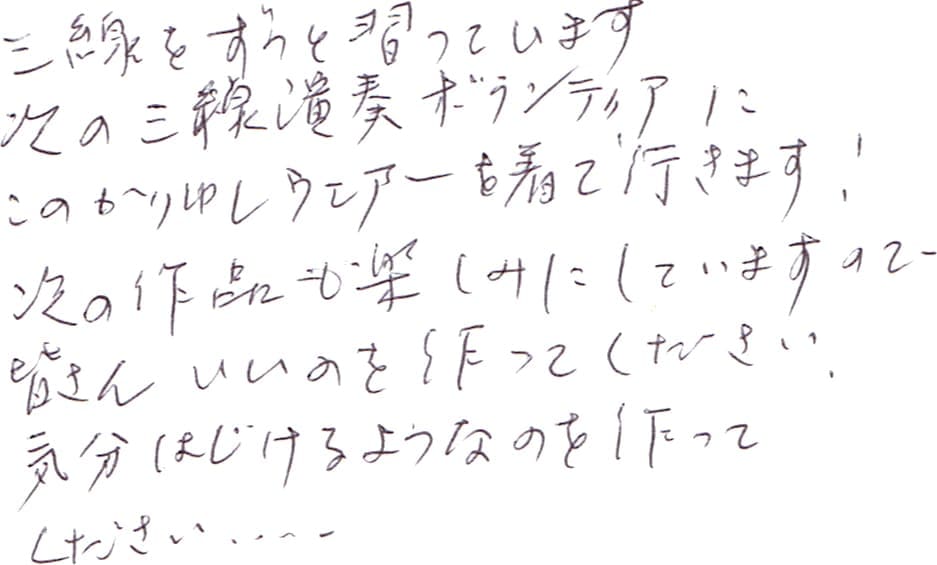 三線をずっと習っています
次の三線演奏ボランティアに
このかりゆしウェアーを着て行きます!
次の作品も楽しみにしていますので
皆さんいいのを作ってください.
気分はじけるようなのを作って
ください.....